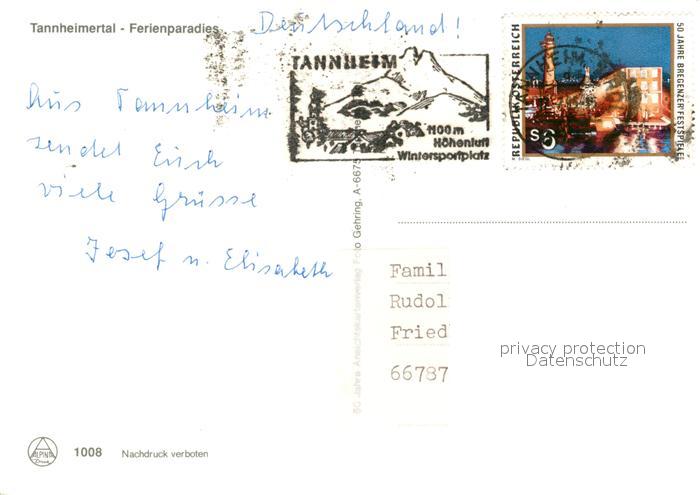 Tannheimertal - Ferienparadies
Deutschland!
TANNHEIM
1100 m
Höhenluft
Wintersportplatz
REPUBLIK ÖSTERREICH
50 JAHRE BREGENZER FESTSPIELE
S6
Aus Tannheim
sendet Euch
viele Grüsse
Josef u. Elisabeth
50 Jahre Ansichtskartenverlag Foto Gehring, A-6675
Famil
Rudol
Fried
66787
privacy protection
Datenschutz
ALPINA
Druck
1008 Nachdruck verboten